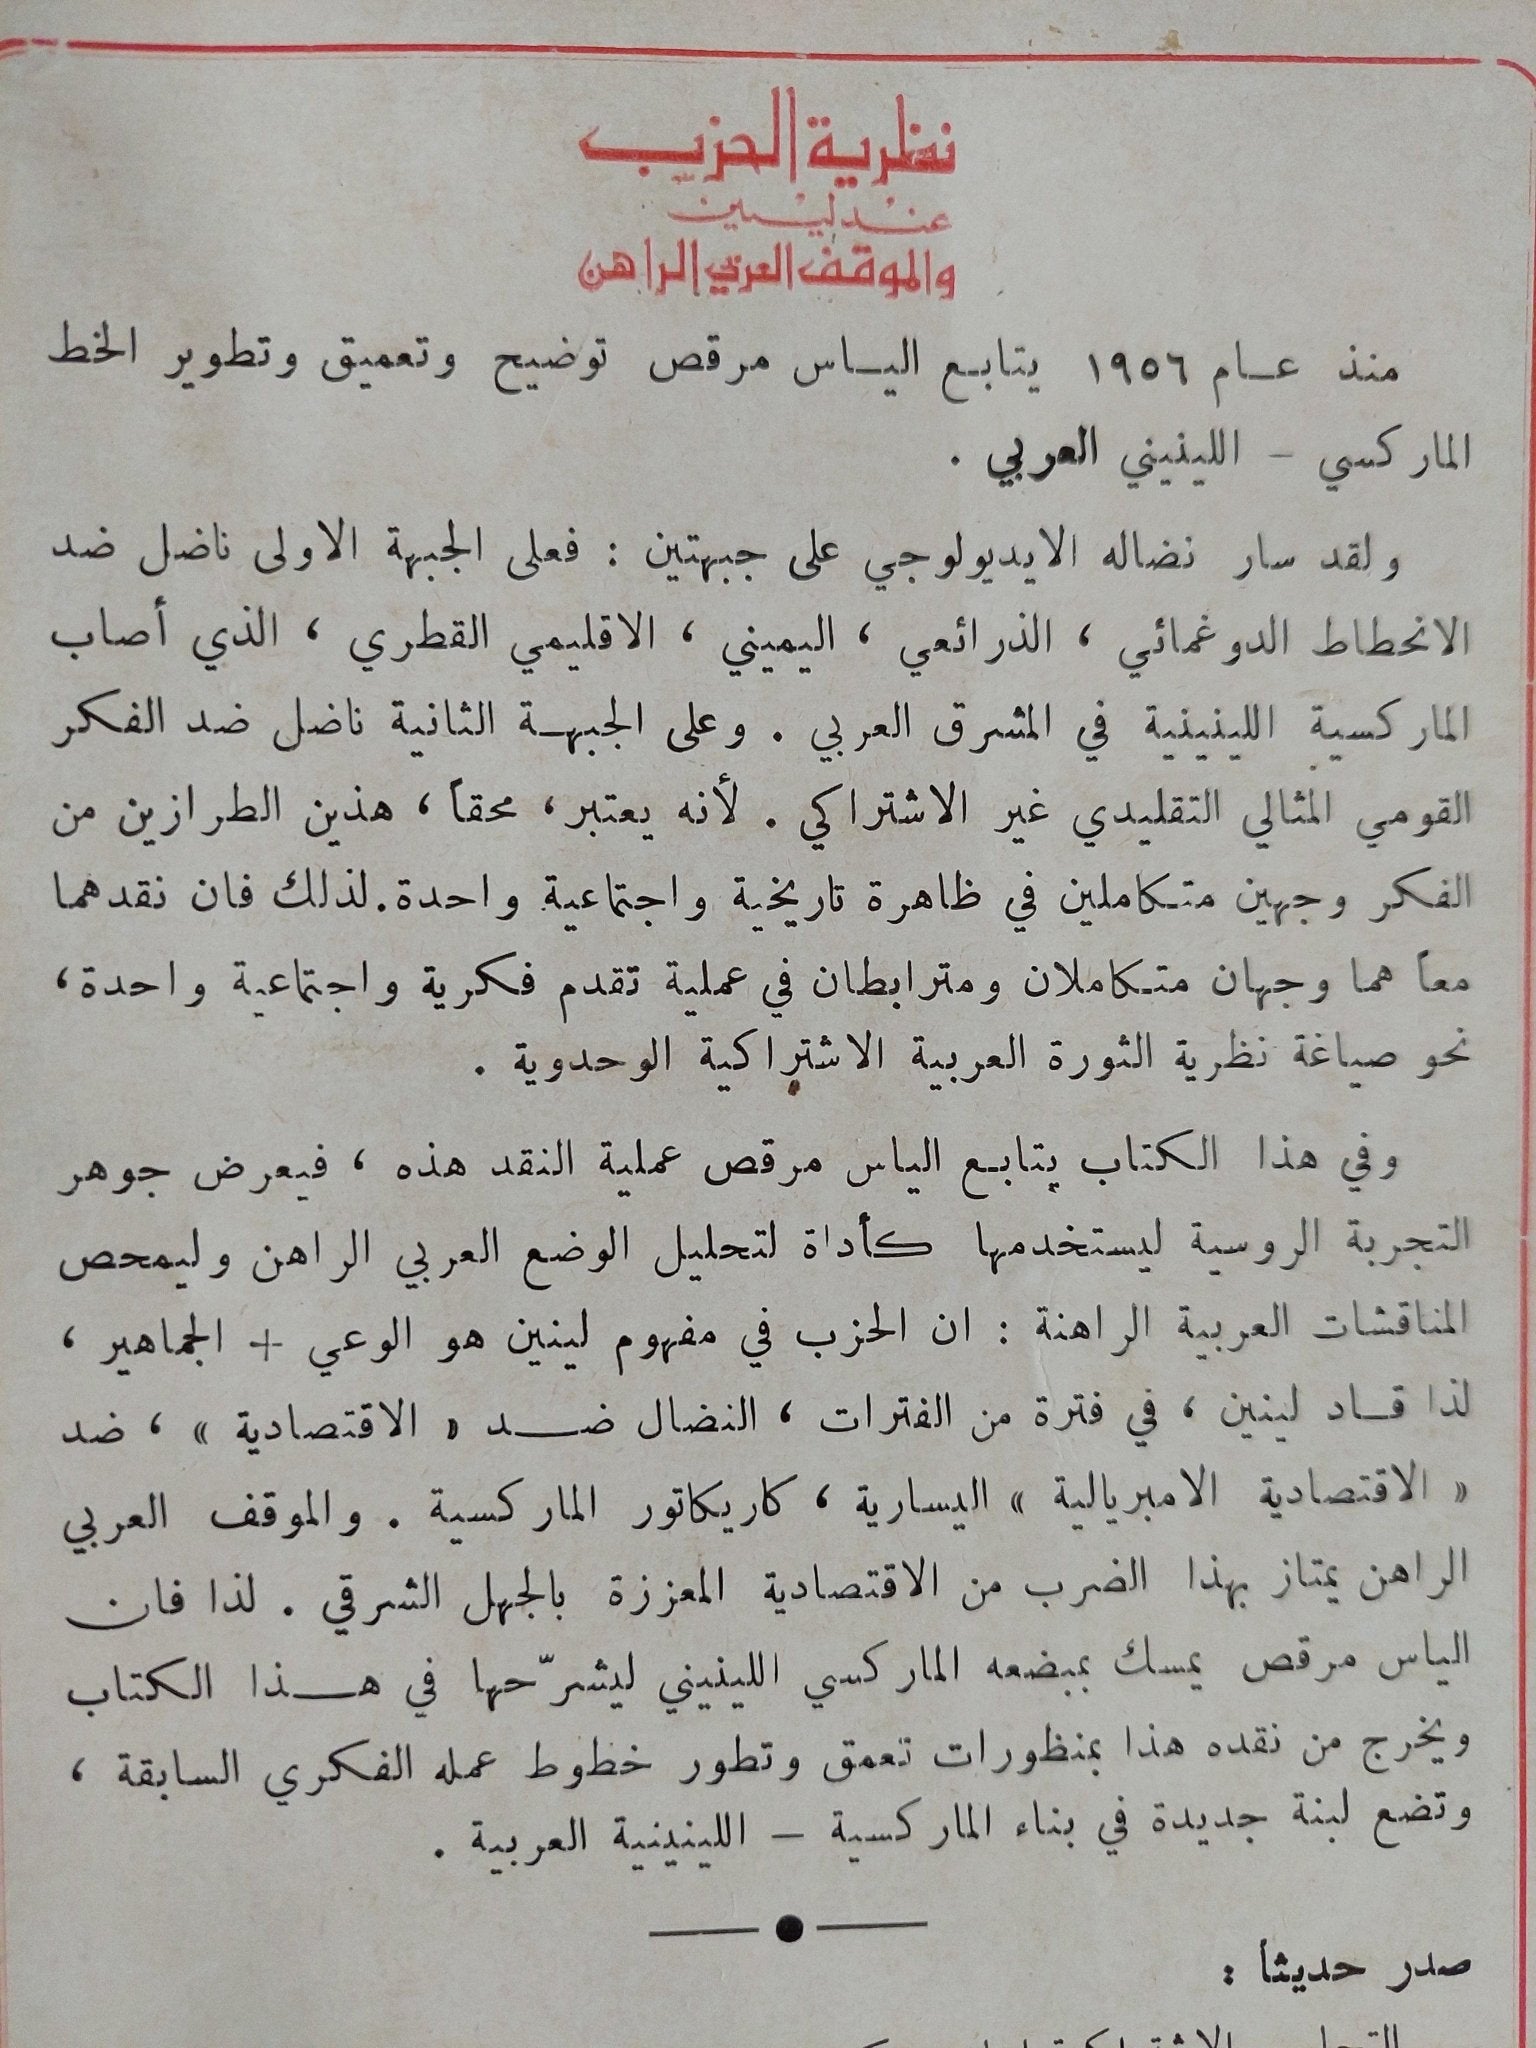 نظرية الحزب
عند لينين
والموقف العربي الراهن
منذ عام ١٩٥٦ يتابع الياس مرقص توضيح وتعميق وتطوير الخط
الماركسي – اللينيني العربي .
ولقد سار نضاله الايديولوجي على جبهتين : فعلى الجبهة الاولى ناضل ضد
الانحطاط الدوغمائي ، الذرائعي ، اليميني ، الاقليمي القطري ، الذي أصاب
الماركسية اللينينية في المشرق العربي . وعلى الجبهة الثانية ناضل ضد الفكر
القومي المثالي التقليدي غير الاشتراكي . لأنه يعتبر ، محقاً ، هذين الطرازين من
الفكر وجهين متكاملين في ظاهرة تاريخية واجتماعية واحدة . لذلك فان نقدهما
معاً هما وجهان متكاملان ومترابطان في عملية تقدم فكرية واجتماعية واحدة ،
نحو صياغة نظرية الثورة العربية الاشتراكية الوحدوية .
وفي هذا الكتاب يتابع الياس مرقص عملية النقد هذه ، فيعرض جوهر
التجربة الروسية ليستخدمها كأداة لتحليل الوضع العربي الراهن وليمحص
المناقشات العربية الراهنة : ان الحزب في مفهوم لينين هو الوعي + الجماهير ،
لذا قاد لينين ، في فترة من الفترات ، النضال ضد « الاقتصادية » ، ضد
« الاقتصادية الامبريالية » اليسارية ، كاريكاتور الماركسية . والموقف العربي
الراهن يمتاز بهذا الضرب من الاقتصادية المعززة بالجهل الشرقي . لذا فان
الياس مرقص يمسك بمبضعه الماركسي اللينيني ليشرّحها في هذا الكتاب
ويخرج من نقده هذا بمنظورات تعمق وتطور خطوط عمله الفكري السابقة ،
وتضع لبنة جديدة في بناء الماركسية – اللينينية العربية .
صدر حديثاً :